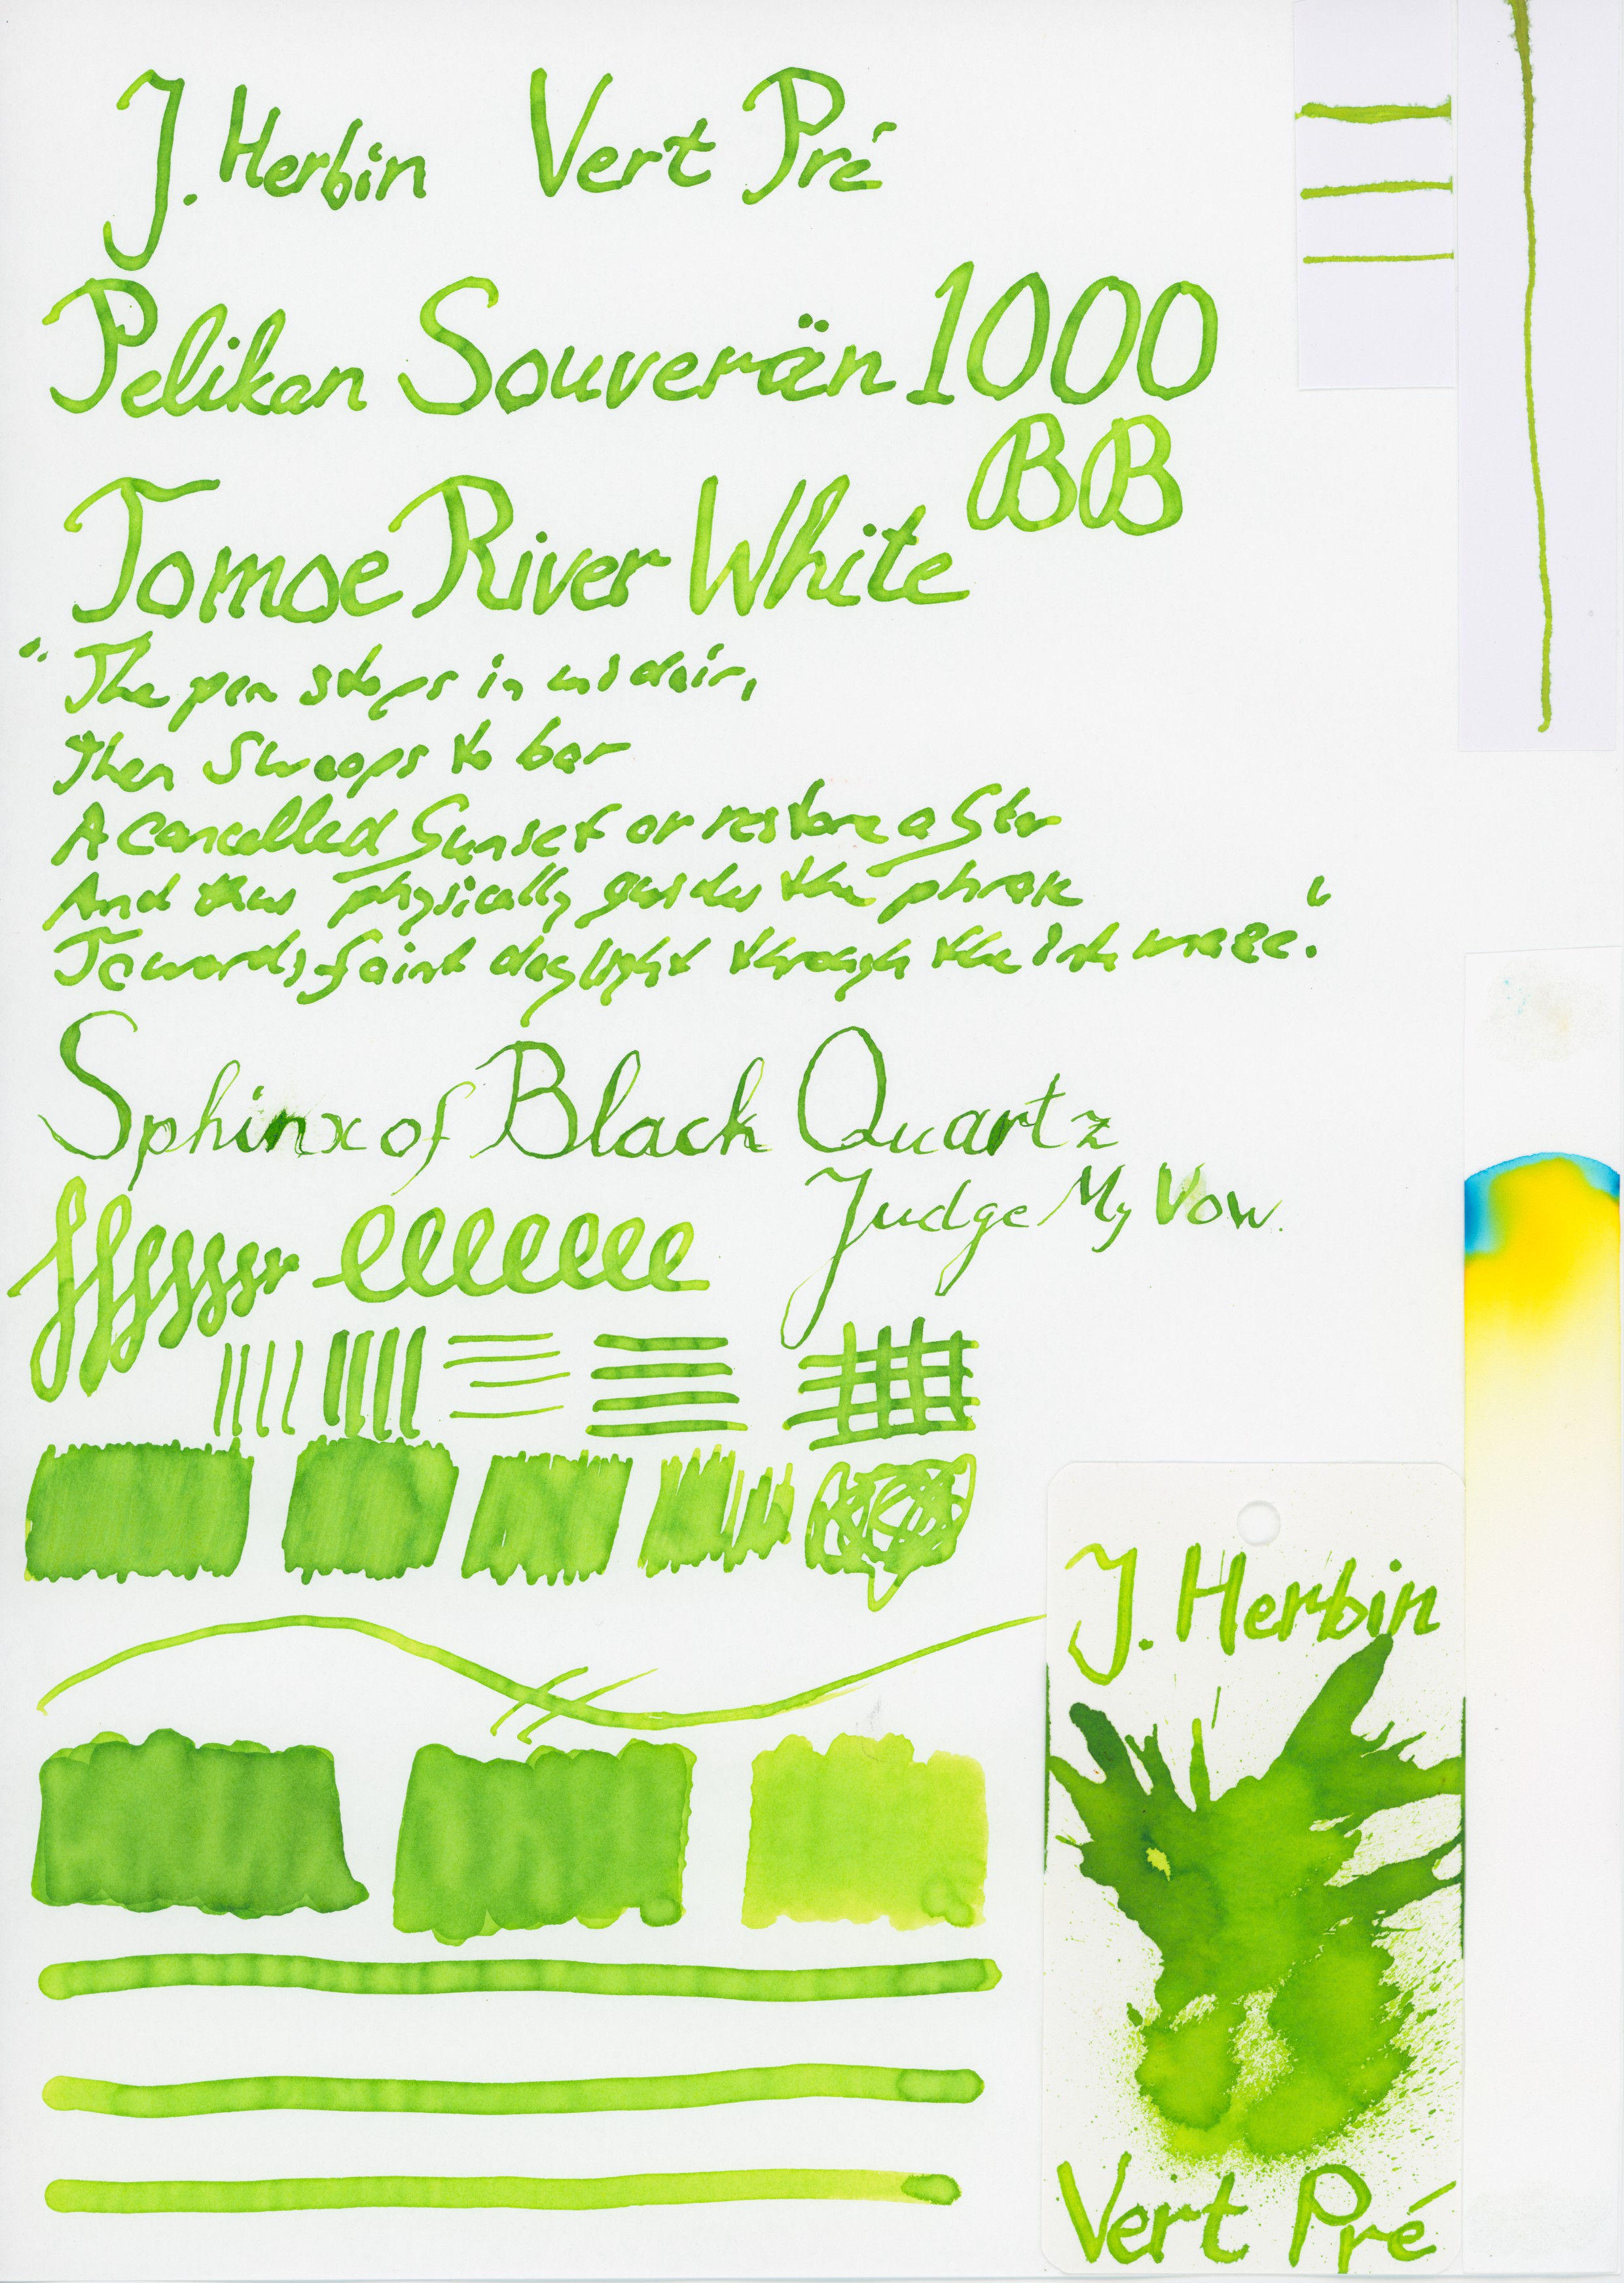 J. Herbin Vert Pré
Pelikan Souverän 1000
BB
Tomoe River White
"The pen stops in midair,
then Swoops to bar
A Cancelled Sunset or restore a Star
And thus physically guides the phrase
Towards faint daylight through the ink maze."
Sphinx of Black Quartz
Judge My Vow.
J. Herbin
Vert Pré